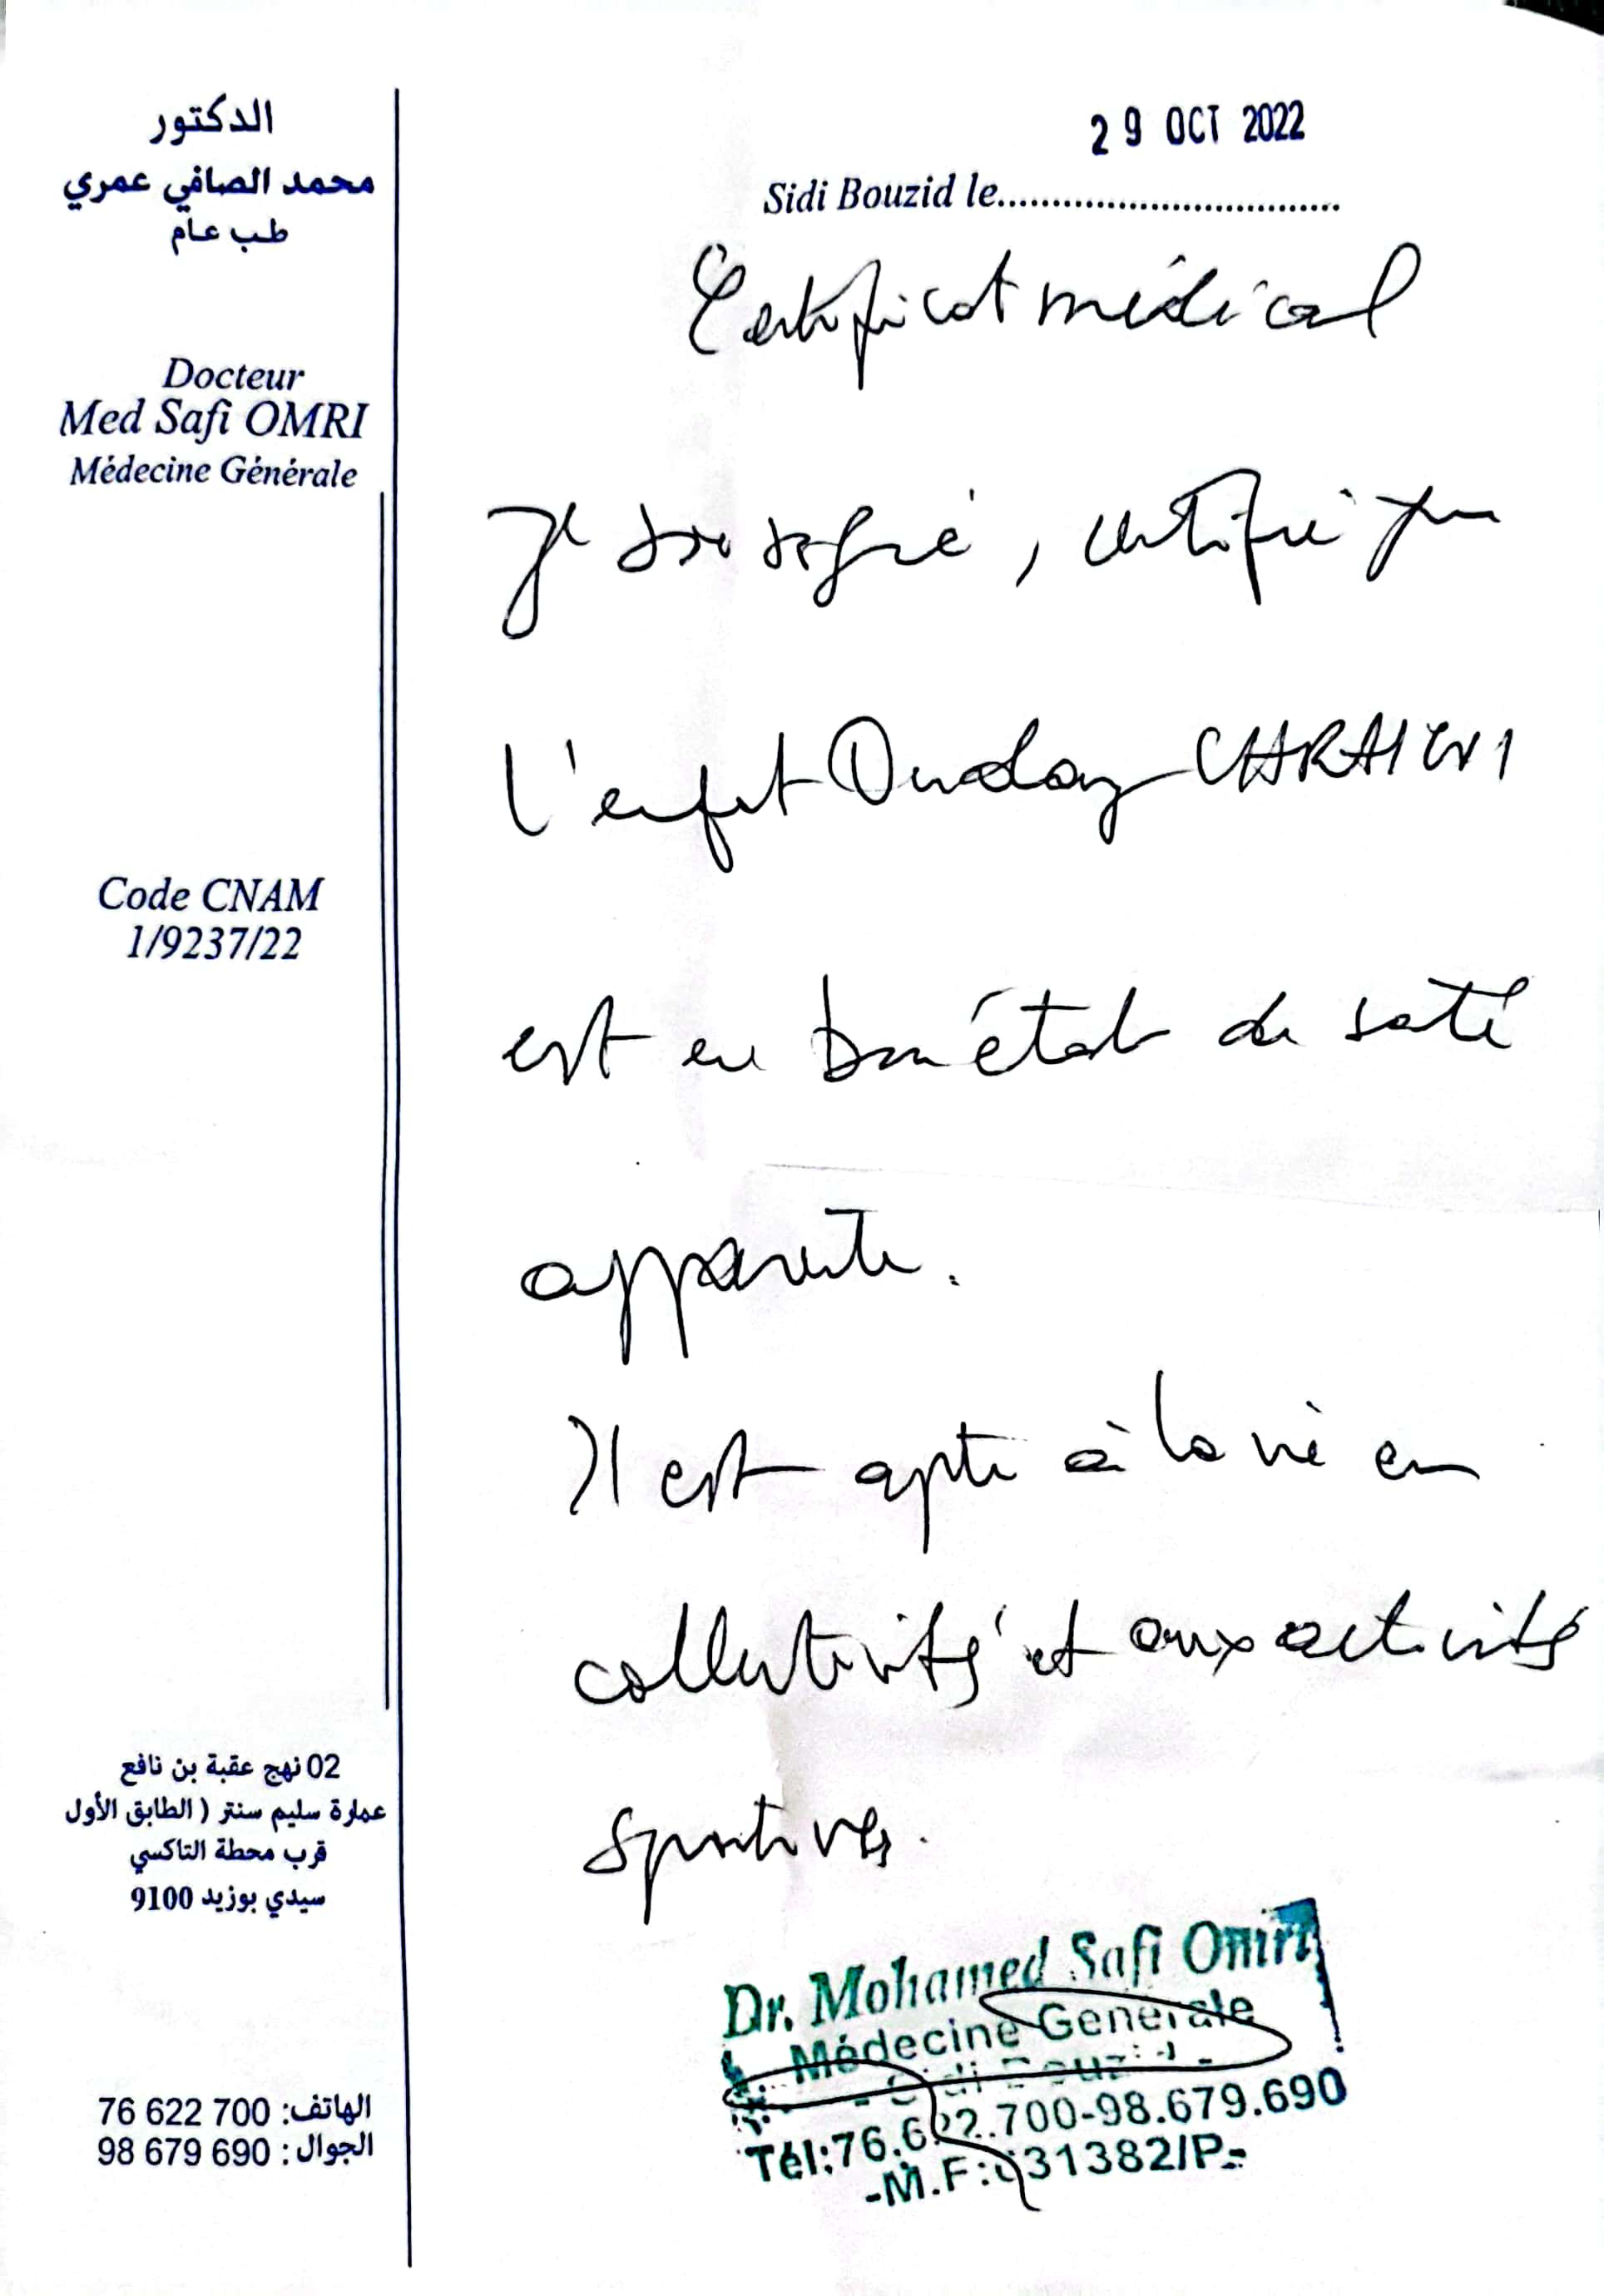 الدكتور
محمد الصافي عمري
طب عام
Docteur
Med Safi OMRI
Médecine Générale
Code CNAM
1/9237/22
02 نهج عقبة بن نافع
عمارة سليم سنتر ( الطابق الأول
قرب محطة التاكسي
سيدي بوزيد 9100
الهاتف: 76 622 700
الجوال : 98 679 690
29 OCT 2022
Sidi Bouzid le................................
Certificat médical
Je soussigné, certifie que
l'enfant
est en bon état de santé
apparente.
Il est apte à la vie en
collectivité et aux activités
sportives.
Dr. Mohamed Safi Omri
Médecine Generale
Tél:76.622.700-98.679.690
-M.F: 31382/P-